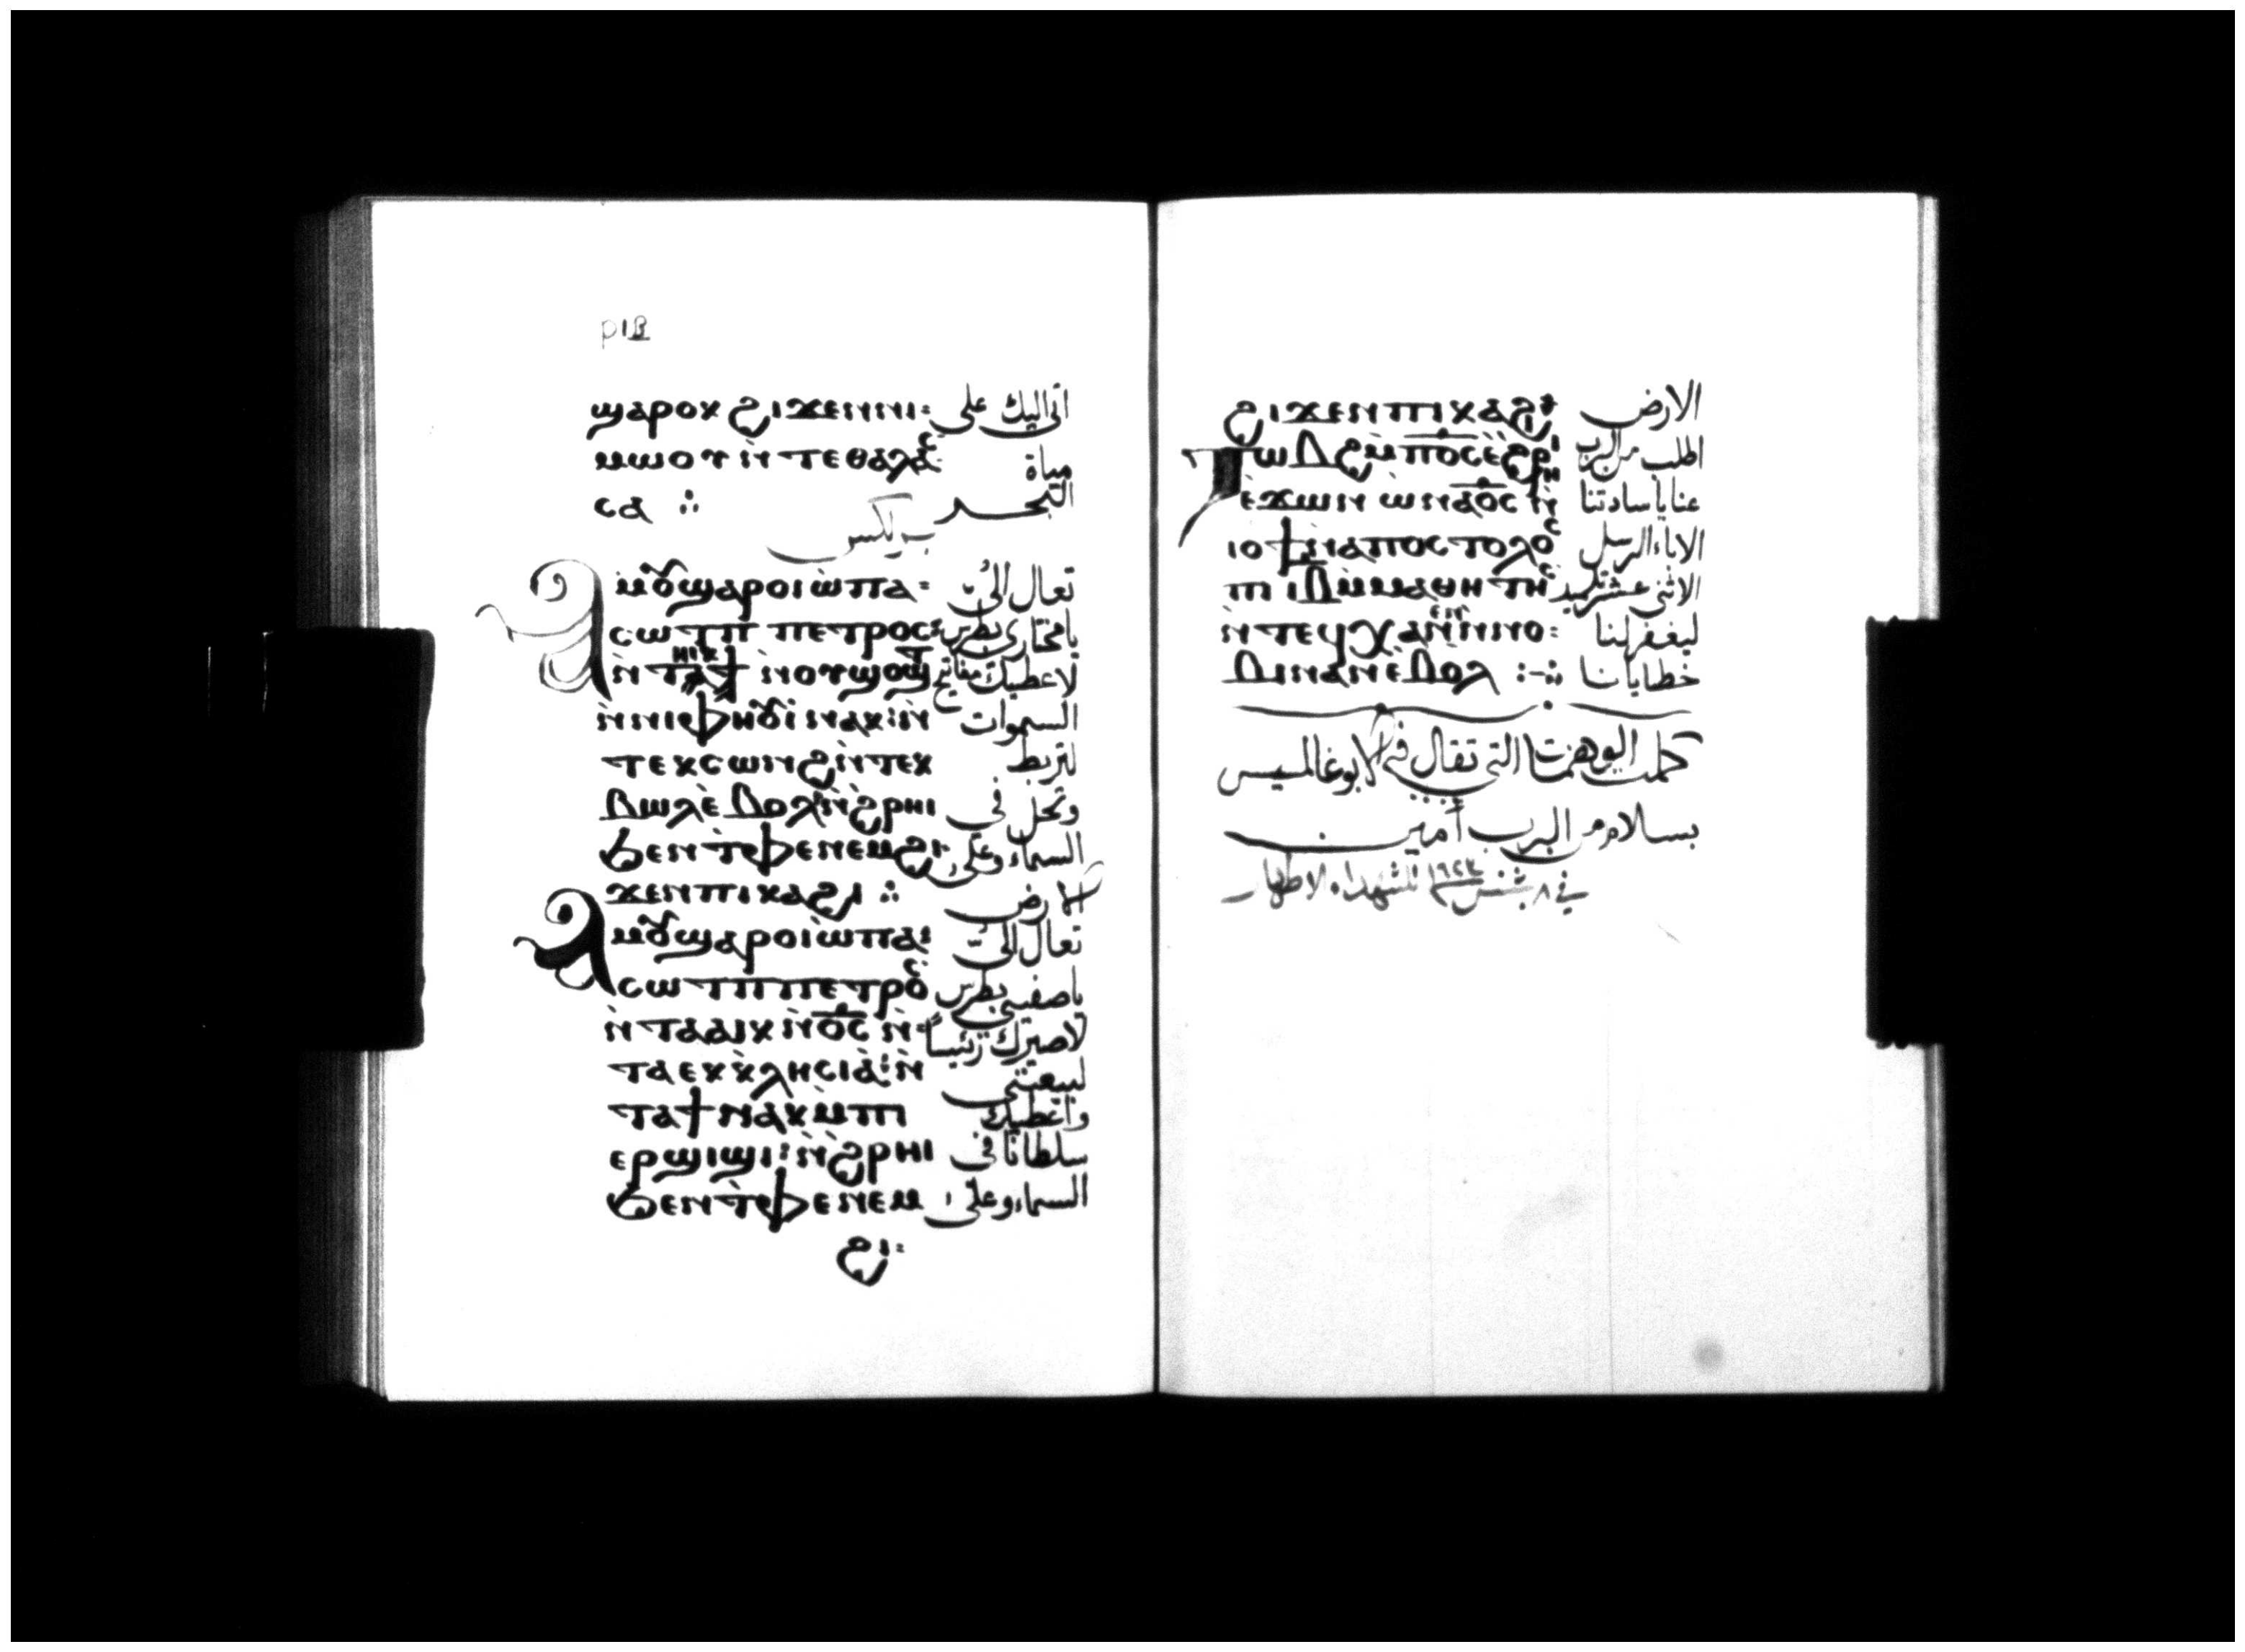 ⲣⲓⲃ
ϣⲁⲣⲟⲕ ϩⲓϫⲉⲛⲛⲓ: اتى اليك على
ⲙⲱⲟⲩ ⲛ̀ⲧⲉⲑⲁⲗⲁ مياة
ⲥⲁ ⲻ البحر
ⲁⲙⲟⲩ ϣⲁⲣⲟⲓ ⲱ̀ⲡⲁ: تعال الىّ
ⲥⲱⲧⲡ ⲡⲉⲧⲣⲟⲥ: يا مختارى بطرس
ⲛ̀ⲧⲁϯ ⲛ̀ⲛⲟⲩϣⲟϣⲧ لاعطيك مفاتيح
ⲛ̀ⲛⲓⲫⲏⲟⲩⲓ̀ ⲛⲁⲕ: ⲛ̀ السموات
ⲧⲉⲕⲥⲱⲛϩ ⲛ̀ⲧⲉⲕ لتربط
ⲃⲱⲗ ⲉ̀ⲃⲟⲗ ⲛ̀ϩⲣⲏⲓ وتحل فى
ϧⲉⲛ ⲧ̀ⲫⲉ ⲛⲉⲙ ϩⲓ: السماء وعلى
ϫⲉⲛ ⲡⲓⲕⲁϩⲓ ⲻ الارض
ⲁⲙⲟⲩ ϣⲁⲣⲟⲓ ⲱ̀ⲡⲁ: تعال الىّ
ⲥⲱⲧⲡ ⲡⲉⲧⲣⲟⲥ يا صفيى بطرس
ⲛ̀ⲧⲁⲁⲓⲕ ⲛ̀ⲟ̅ⲥ̅ ⲛ̀: لاصيرك رئيساً
ⲧⲁⲉⲕⲕ̀ⲗⲏⲥⲓⲁ: ⲛ̀ لبيعتى
ⲧⲁϯ ⲛⲁⲕ ⲙ̀ⲡⲓ واعطيك
ⲉⲣϣⲓϣⲓ: ⲛ̀ϩⲣⲏⲓ سلطانا فى
ϧⲉⲛ ⲧ̀ⲫⲉ ⲛⲉⲙ السماء وعلى
ϩⲓ:
ϩⲓϫⲉⲛ ⲡⲓⲕⲁϩⲓ الارض
ⲧⲱⲃϩ ⲙ̀ⲡ̅ⲟ̅ⲥ̅ ⲉ̀ϩⲣⲏⲓ اطلب من الرب
ⲉ̀ϫⲱⲛ ⲱ ⲛⲁⲟ̅ⲥ̅ ⲛ̀ عنا يا سادتنا
ⲓⲟϯ ⲛ̀ⲁⲡⲟⲥⲧⲟⲗⲟⲥ الاباء الرسل
ⲡⲓⲓ̅ⲃ̅ ⲙ̀ⲙⲁⲑⲏⲧⲏⲥ الاثنى عشر تلميذ
ⲛ̀ⲧⲉϥⲭⲁ ⲛⲉⲛⲛⲟ: ليغفر لنا
ⲃⲓ ⲛⲁⲛ ⲉ̀ⲃⲟⲗ :-ⲻ خطايانا
كملت التى تقال فى الابوغالمسيس
بسلام من الرب أمين
فى ٨ بشنس للشهداء الاطهار